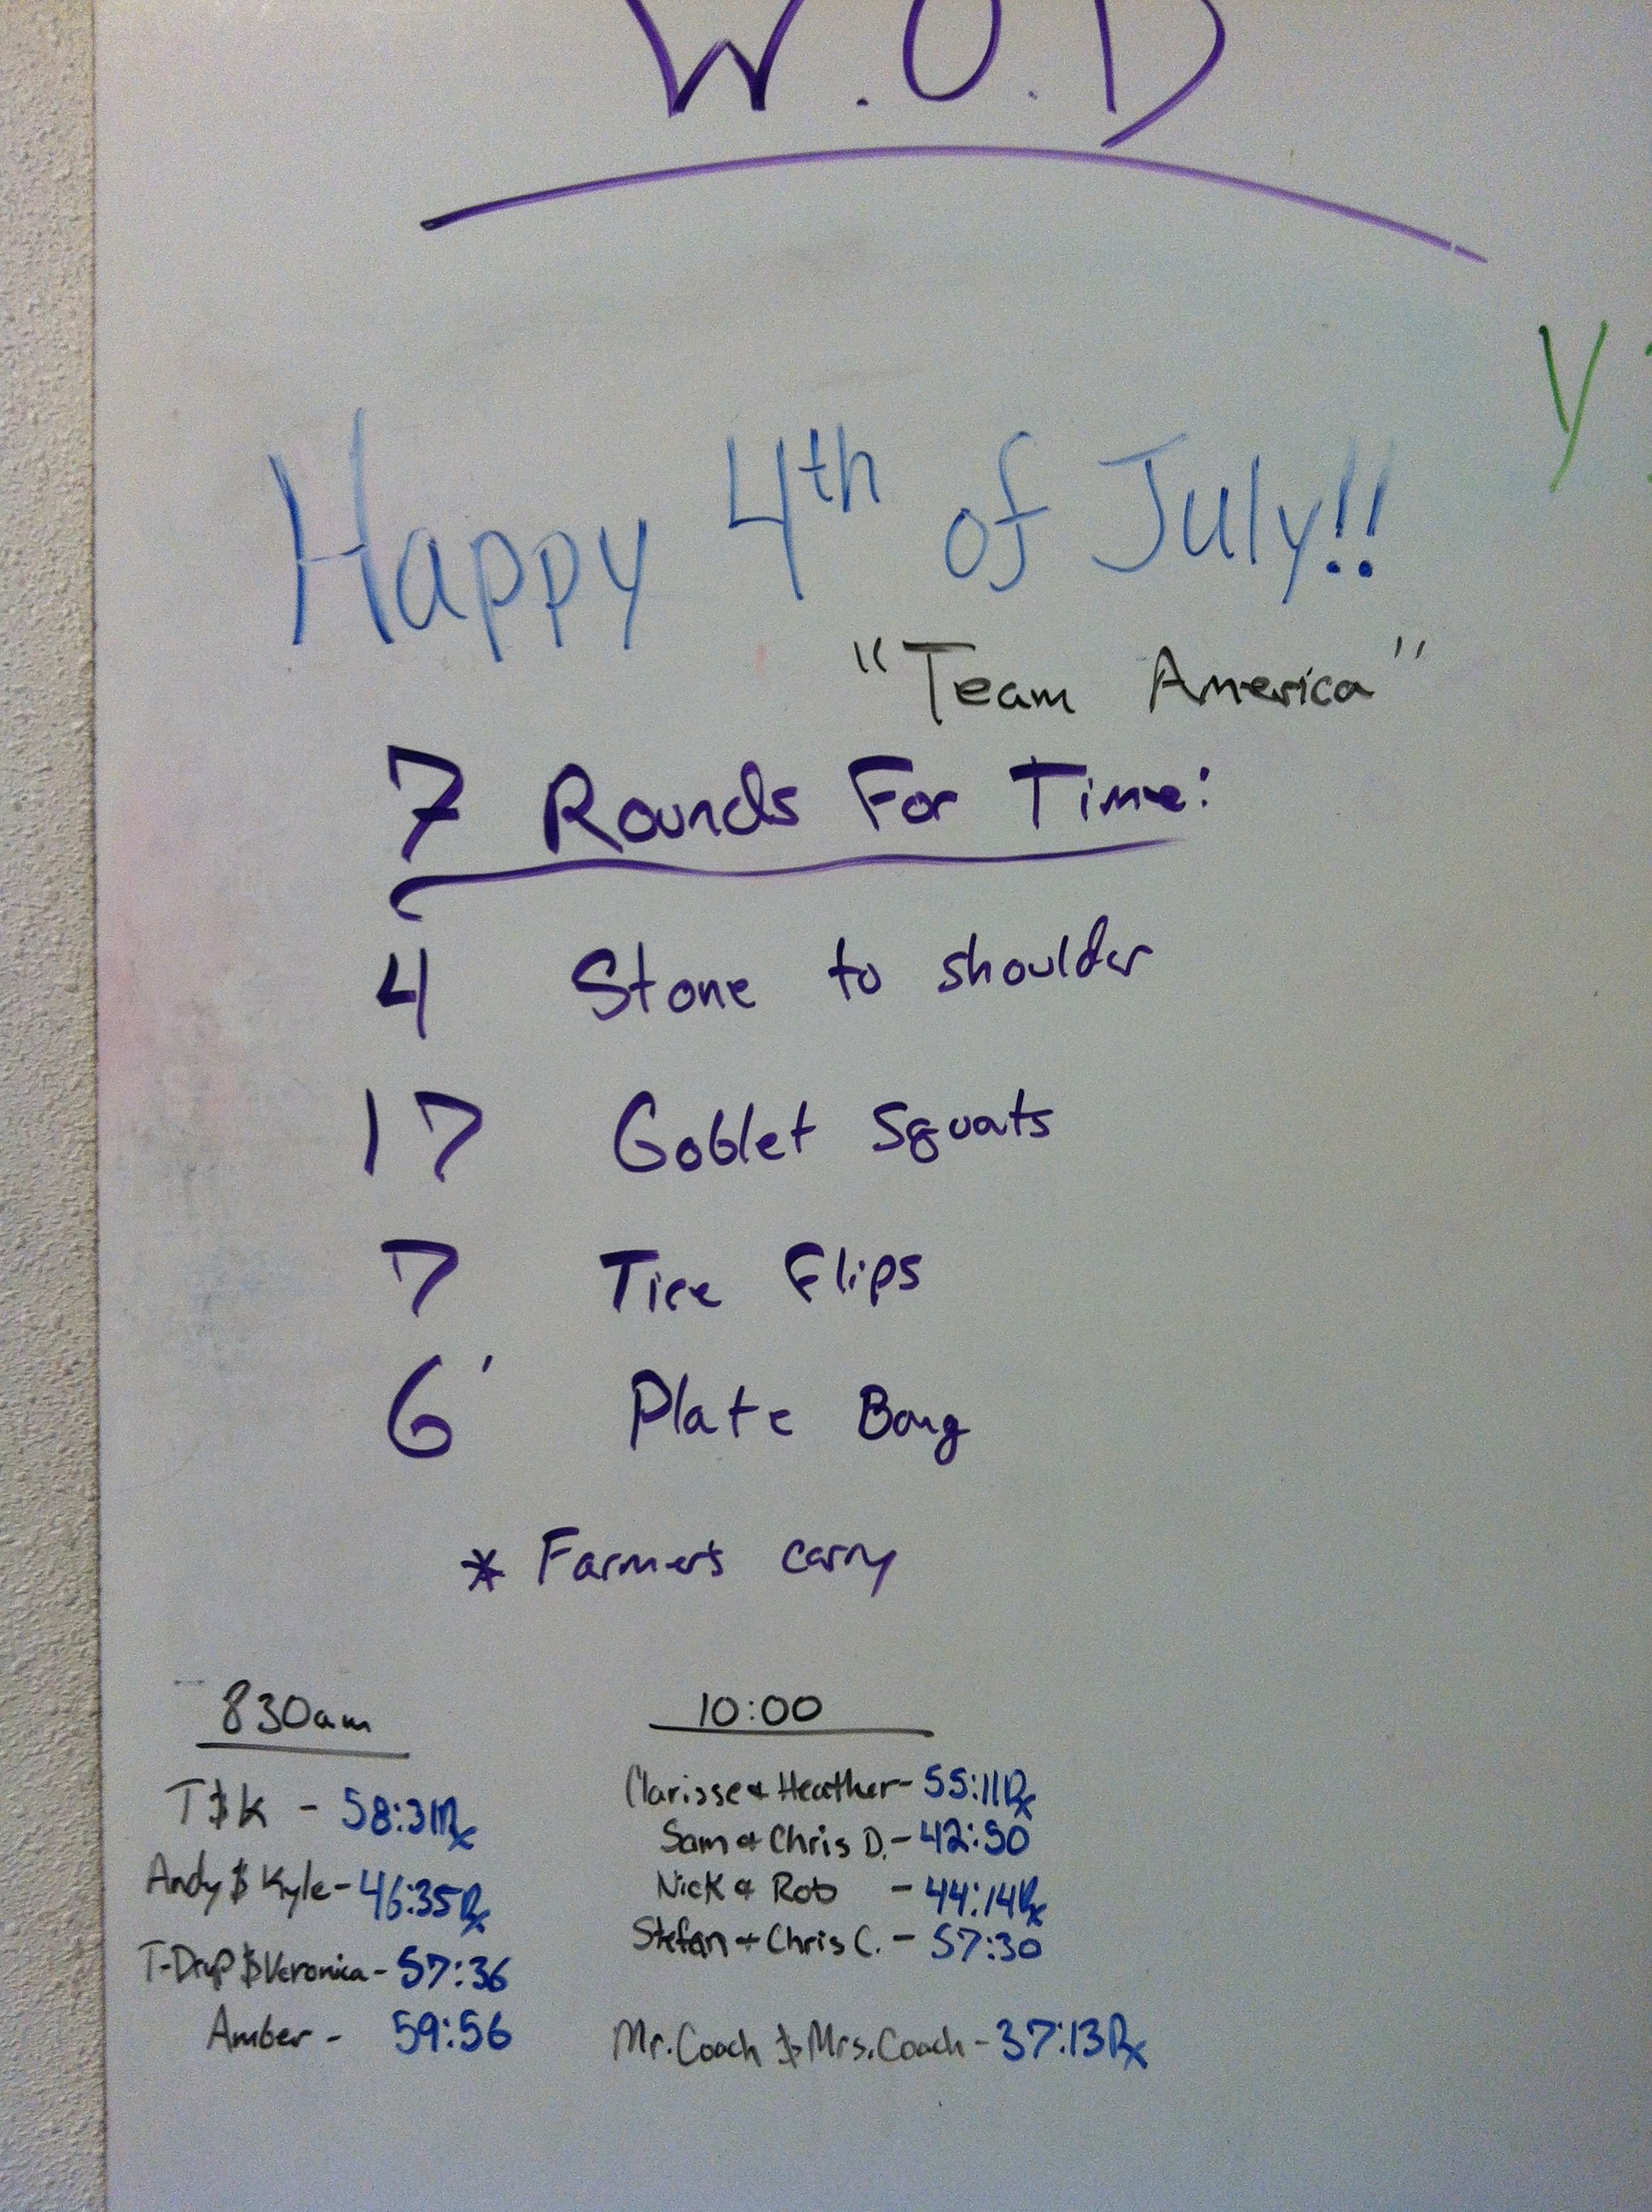 W.O.D
Happy 4th of July!!
"Team America"
7 Rounds For Time:
4 Stone to shoulder
17 Goblet Squats
7 Tire Flips
6' Plate Bang
* Farmers carry
830am
T $ K - 58:31Rx
Andy $ Kyle - 46:35Rx
T-Drup $ Veronica - 57:36
Amber - 59:56
10:00
Clarisse & Heather - 55:11Rx
Sam & Chris D. - 42:50
Nick & Rob - 44:14Rx
Stefan + Chris C. - 57:30
Mr. Coach $ Mrs. Coach - 37:13Rx